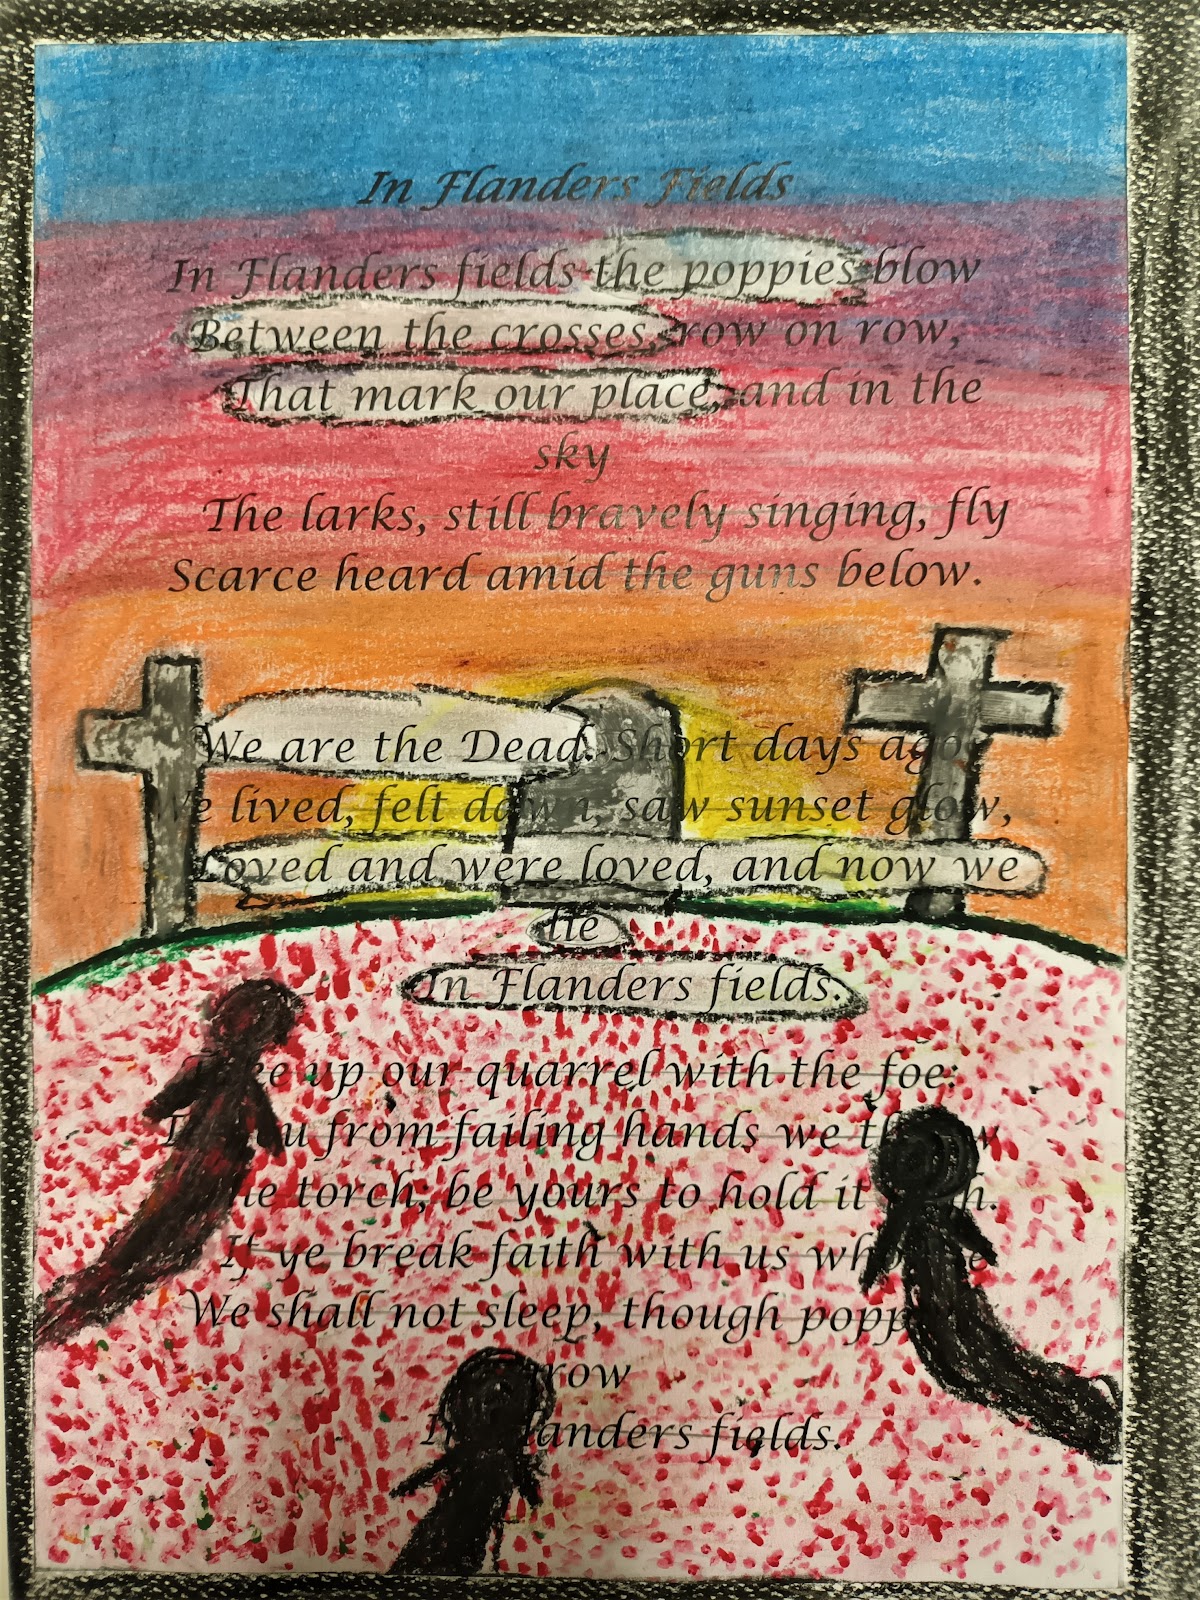 In Flanders Fields
In Flanders fields the poppies blow
Between the crosses, row on row,
That mark our place, and in the
sky
The larks, still bravely singing, fly
Scarce heard amid the guns below.
We are the Dead. Short days ago
We lived, felt dawn, saw sunset glow,
Loved and were loved, and now we
lie
In Flanders fields.
Take up our quarrel with the foe:
To you from failing hands we throw
The torch; be yours to hold it high.
If ye break faith with us who die
We shall not sleep, though poppies
grow
In Flanders fields.